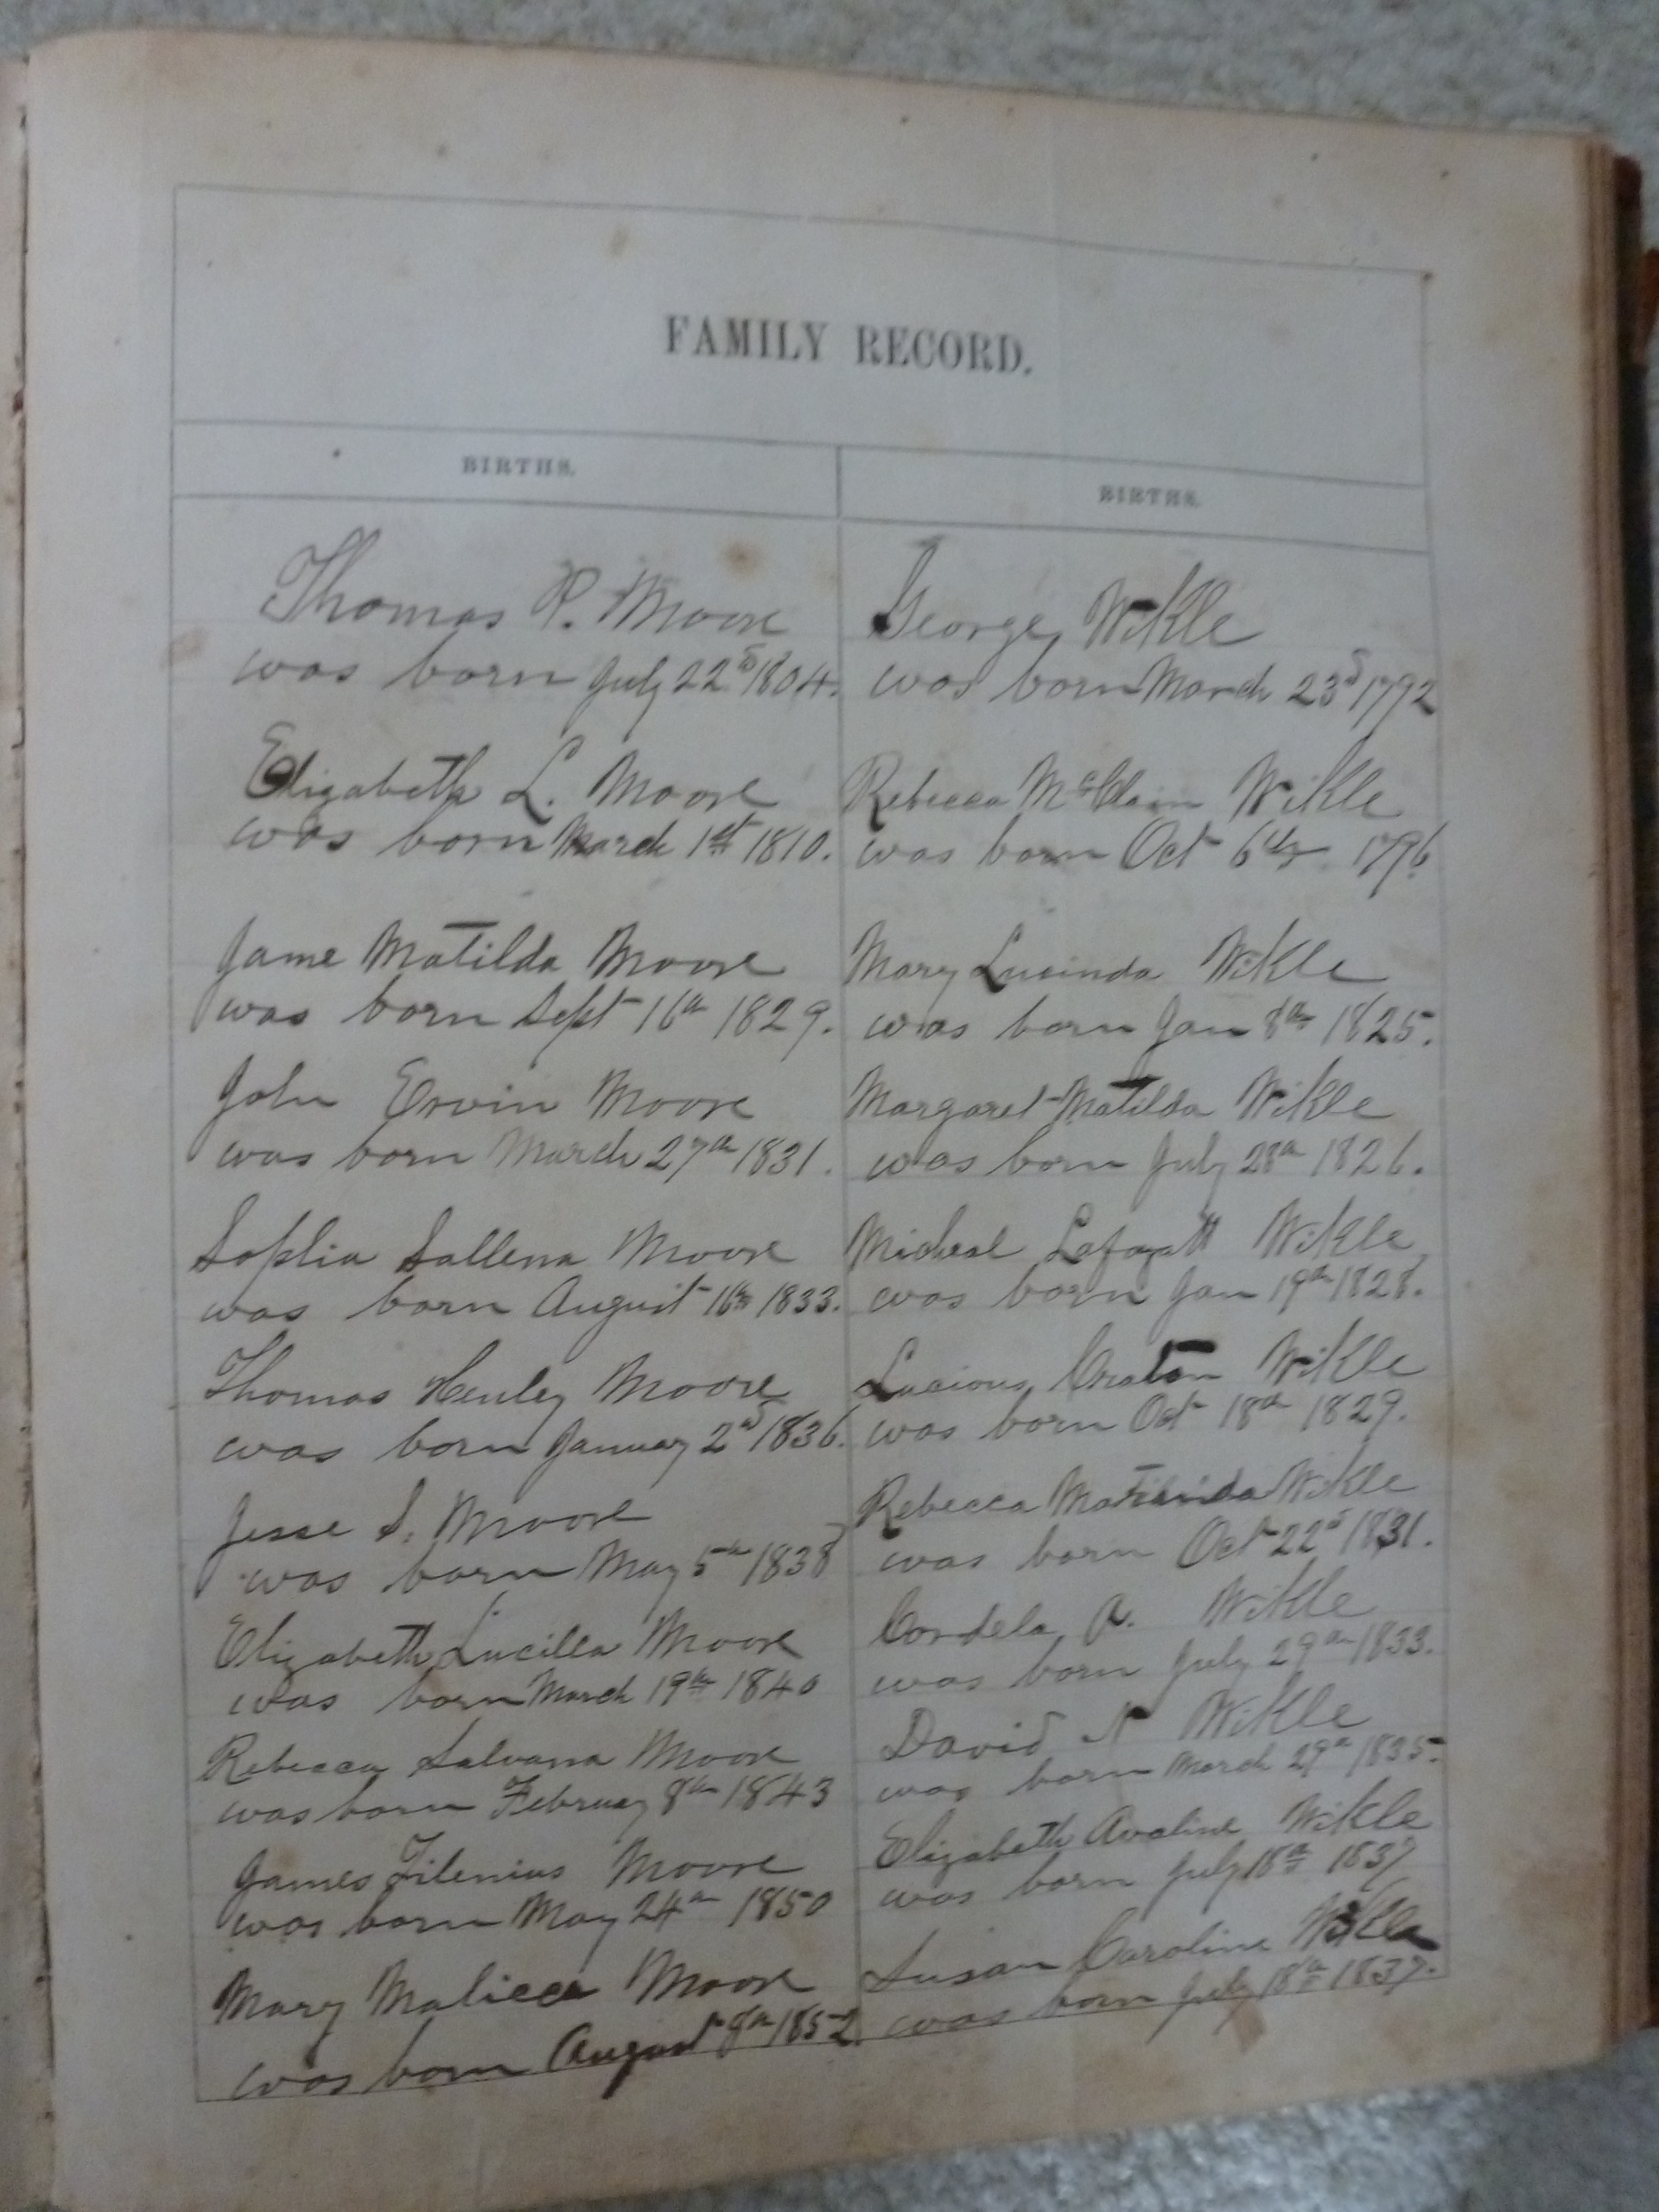 FAMILY RECORD.
BIRTHS.
Thomas P. Moore
was born July 22d 1804.
Elizabeth L. Moore
was born March 1st 1810.
Jame Matilda Moore
was born Sept 16th 1829.
John Ervin Moore
was born March 27th 1831.
Sophia Sallena Moore
was born August 16th 1833.
Thomas Henley Moore
was born January 2nd 1836.
Jesse S. Moore
was born May 5th 1838
Elizabeth Lucilla Moore
was born March 19th 1840
Rebecca Salvana Moore
was born February 8th 1843
James Filenius Moore
was born May 24th 1850
Mary Malicca Moore
was born August 8th 1852
BIRTHS.
George Wikle
was born March 23d 1792
Rebecca McClain Wikle
was born Oct 6th 1796
Mary Lucinda Wikle
was born Jan 8th 1825.
Margaret Matilda Wikle
was born July 28th 1826.
Micheal Lafayett Wikle
was born Jan 19th 1828.
Lucious Craton Wikle
was born Oct 18th 1829.
Rebecca Wikle
was born Oct 22d 1831.
Cordela A. Wikle
was born July 29th 1833.
David N Wikle
was born March 29th 1835.
Elizabeth Avaline Wikle
was born July 18th 1837
Susan Caroline Wikle
was born July 18th 1837.